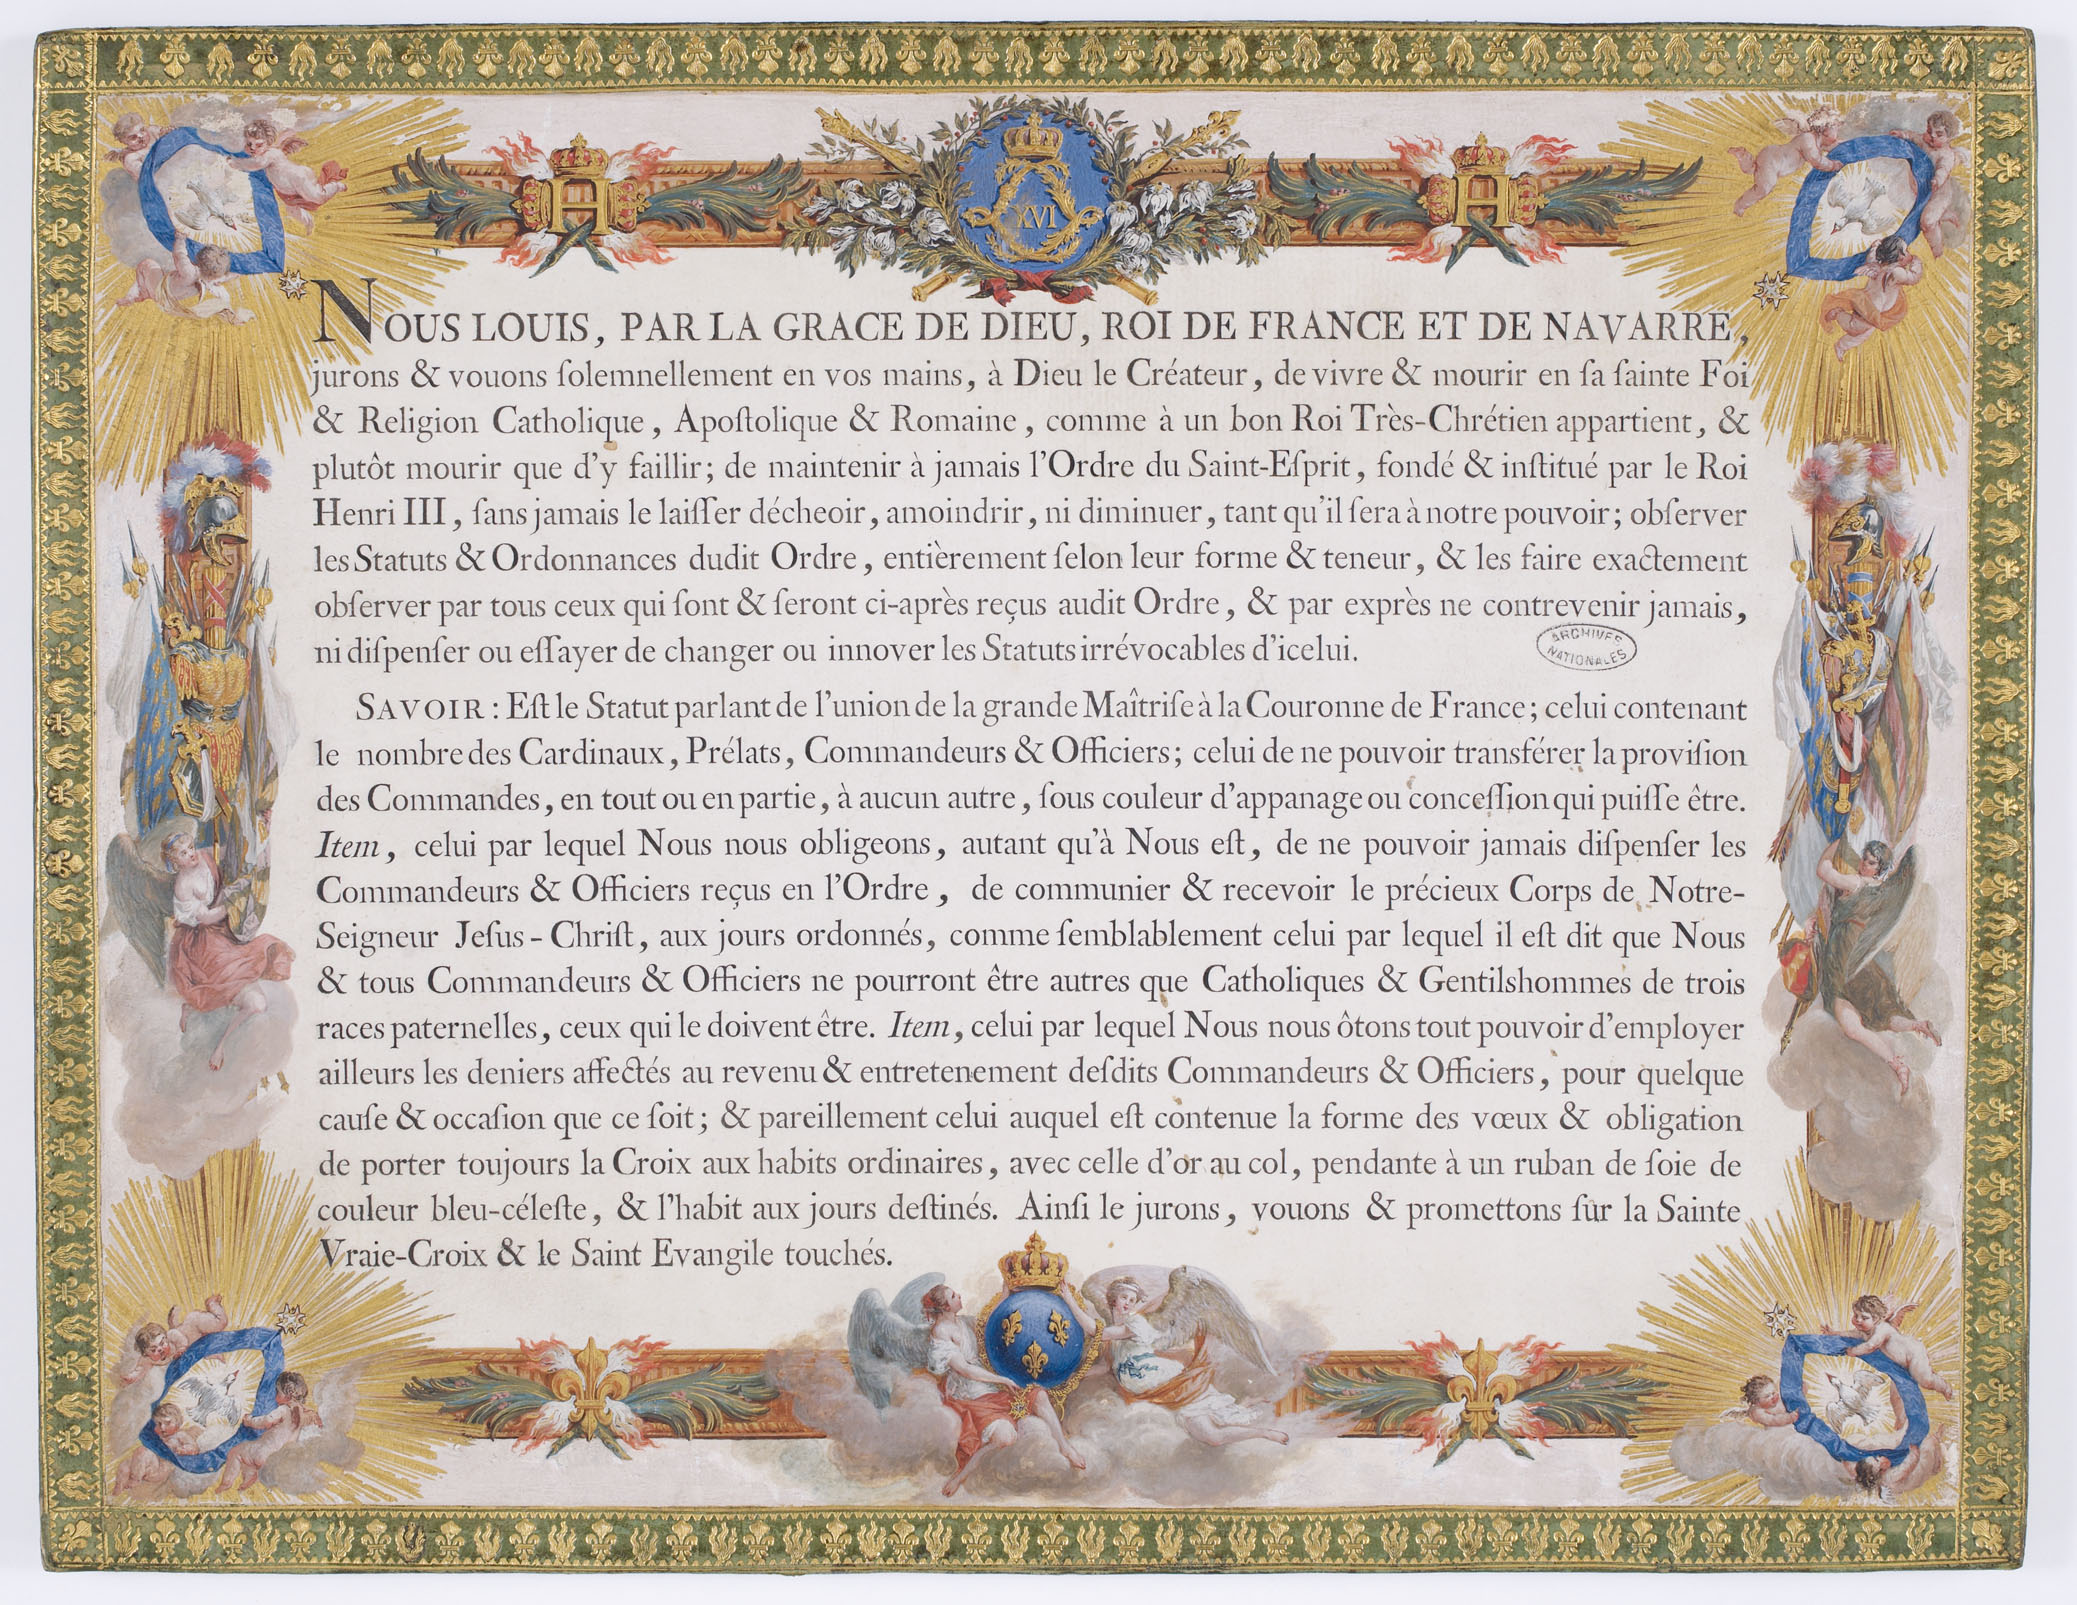 XVI
NOUS LOUIS, PAR LA GRACE DE DIEU, ROI DE FRANCE ET DE NAVARRE,
jurons & vouons ſolemnellement en vos mains, à Dieu le Créateur, de vivre & mourir en ſa ſainte Foi
& Religion Catholique, Apoſtolique & Romaine, comme à un bon Roi Très-Chrétien appartient, &
plutôt mourir que d'y faillir; de maintenir à jamais l'Ordre du Saint-Eſprit, fondé & inſtitué par le Roi
Henri III, ſans jamais le laiſſer décheoir, amoindrir, ni diminuer, tant qu'il ſera à notre pouvoir; obſerver
les Statuts & Ordonnances dudit Ordre, entièrement ſelon leur forme & teneur, & les faire exactement
obſerver par tous ceux qui ſont & ſeront ci-après reçus audit Ordre, & par exprès ne contrevenir jamais,
ni diſpenſer ou eſſayer de changer ou innover les Statuts irrévocables d'icelui.
ARCHIVES
NATIONALES
SAVOIR: Eſt le Statut parlant de l'union de la grande Maîtriſe à la Couronne de France; celui contenant
le nombre des Cardinaux, Prélats, Commandeurs & Officiers; celui de ne pouvoir transférer la proviſion
des Commandes, en tout ou en partie, à aucun autre, ſous couleur d'appanage ou conceſſion qui puiſſe être.
Item, celui par lequel Nous nous obligeons, autant qu'à Nous eſt, de ne pouvoir jamais diſpenſer les
Commandeurs & Officiers reçus en l'Ordre, de communier & recevoir le précieux Corps de Notre-
Seigneur Jeſus-Chriſt, aux jours ordonnés, comme ſemblablement celui par lequel il eſt dit que Nous
& tous Commandeurs & Officiers ne pourront être autres que Catholiques & Gentilshommes de trois
races paternelles, ceux qui le doivent être. Item, celui par lequel Nous nous ôtons tout pouvoir d'employer
ailleurs les deniers affectés au revenu & entretenement deſdits Commandeurs & Officiers, pour quelque
cauſe & occaſion que ce ſoit; & pareillement celui auquel eſt contenue la forme des vœux & obligation
de porter toujours la Croix aux habits ordinaires, avec celle d'or au col, pendante à un ruban de ſoie de
couleur bleu-céleſte, & l'habit aux jours deſtinés. Ainſi le jurons, vouons & promettons ſur la Sainte
Vraie-Croix & le Saint Evangile touchés.